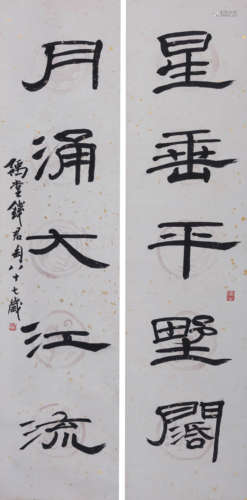 星垂平墅闊
月涌大江流
錢君匋八十七歲